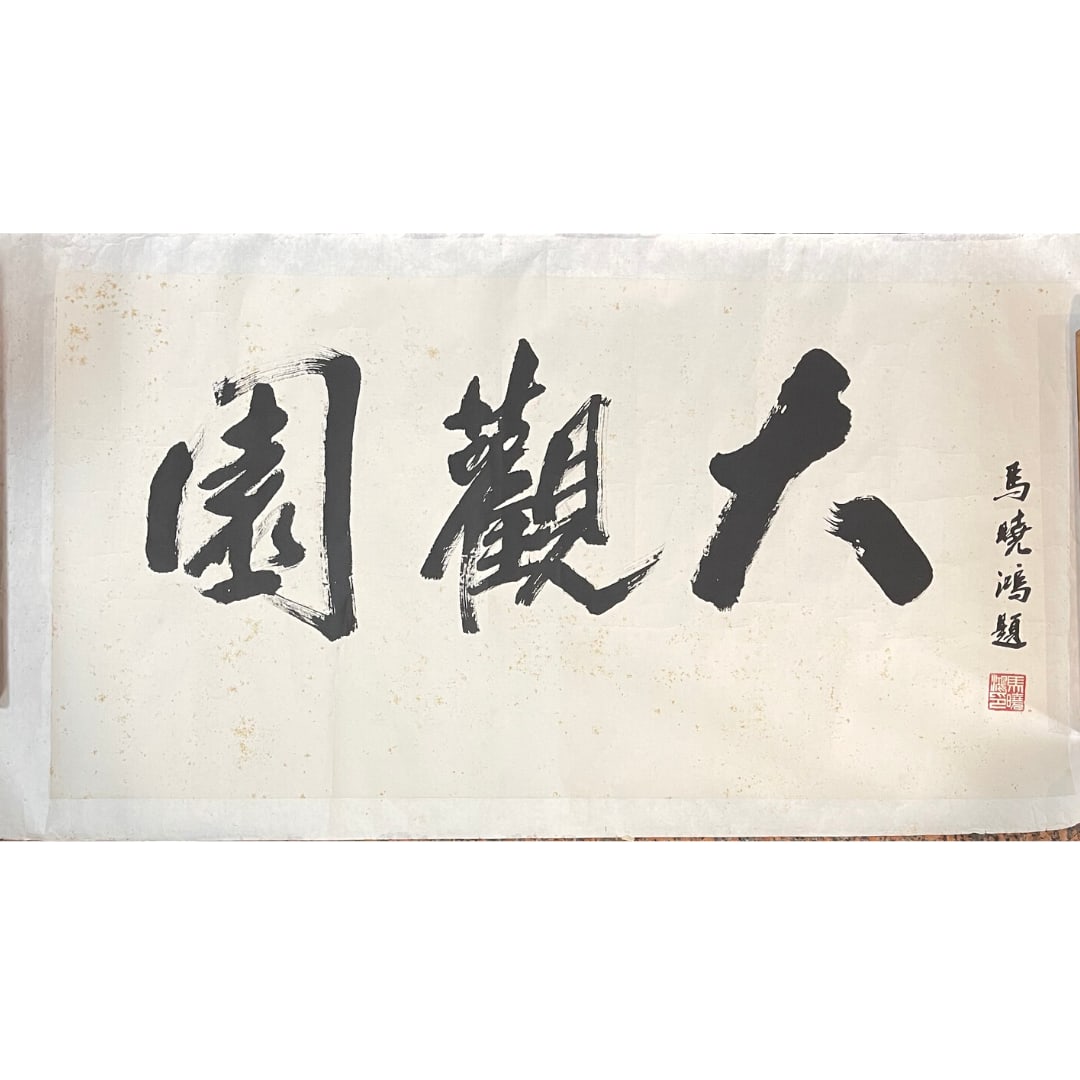 大觀園
馬曉鴻題
馬曉鴻印